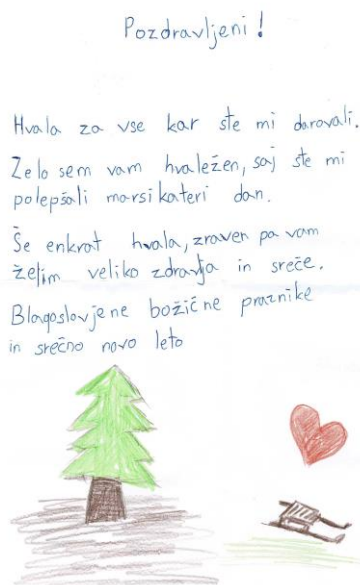 Pozdravljeni!
Hvala za vse kar ste mi darovali.
Zelo sem vam hvaležen, saj ste mi
polepšali marsikateri dan.
Še enkrat hvala, zraven pa vam
želim veliko zdravja in sreče.
Blagoslovjene božične praznike
in srečno novo leto